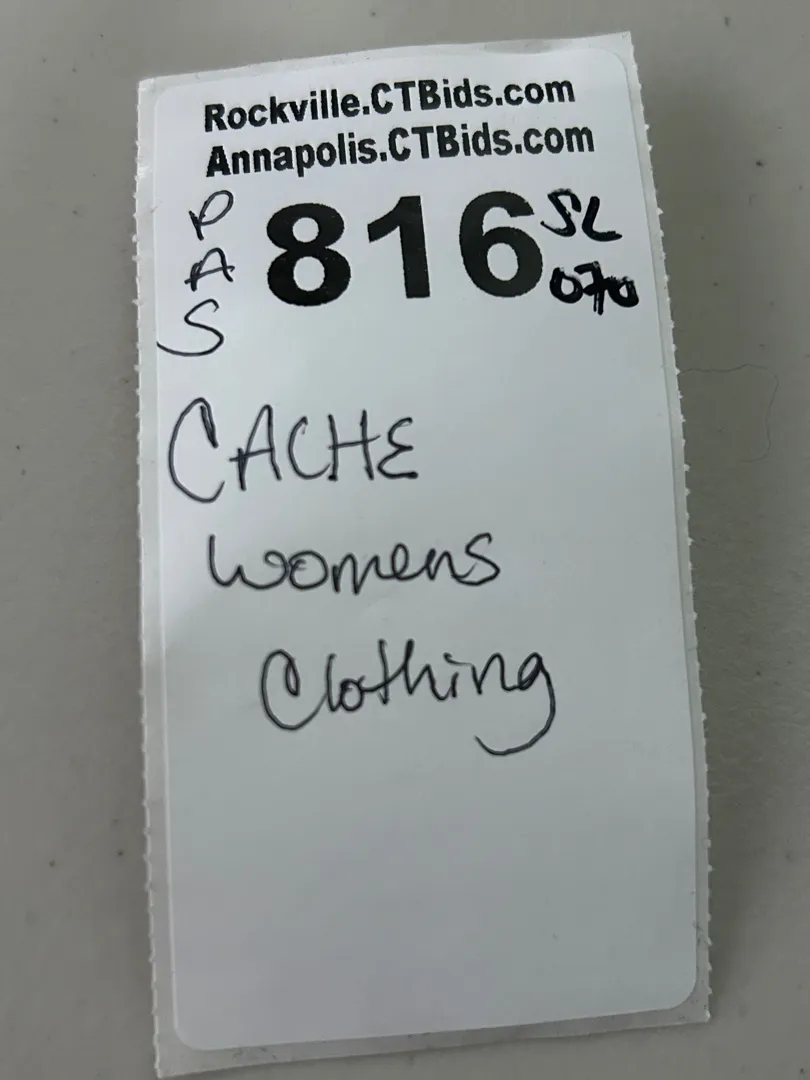 Rockville.CTBids.com
Annapolis.CTBids.com
PAS
816
SL
070
CACHE
womens
Clothing